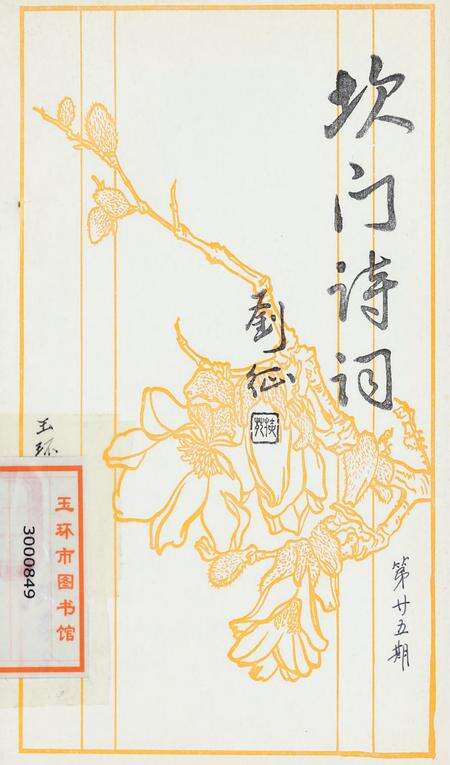 坎门诗词
劉征
第廿五期
玉环
玉环市图书馆
3000849